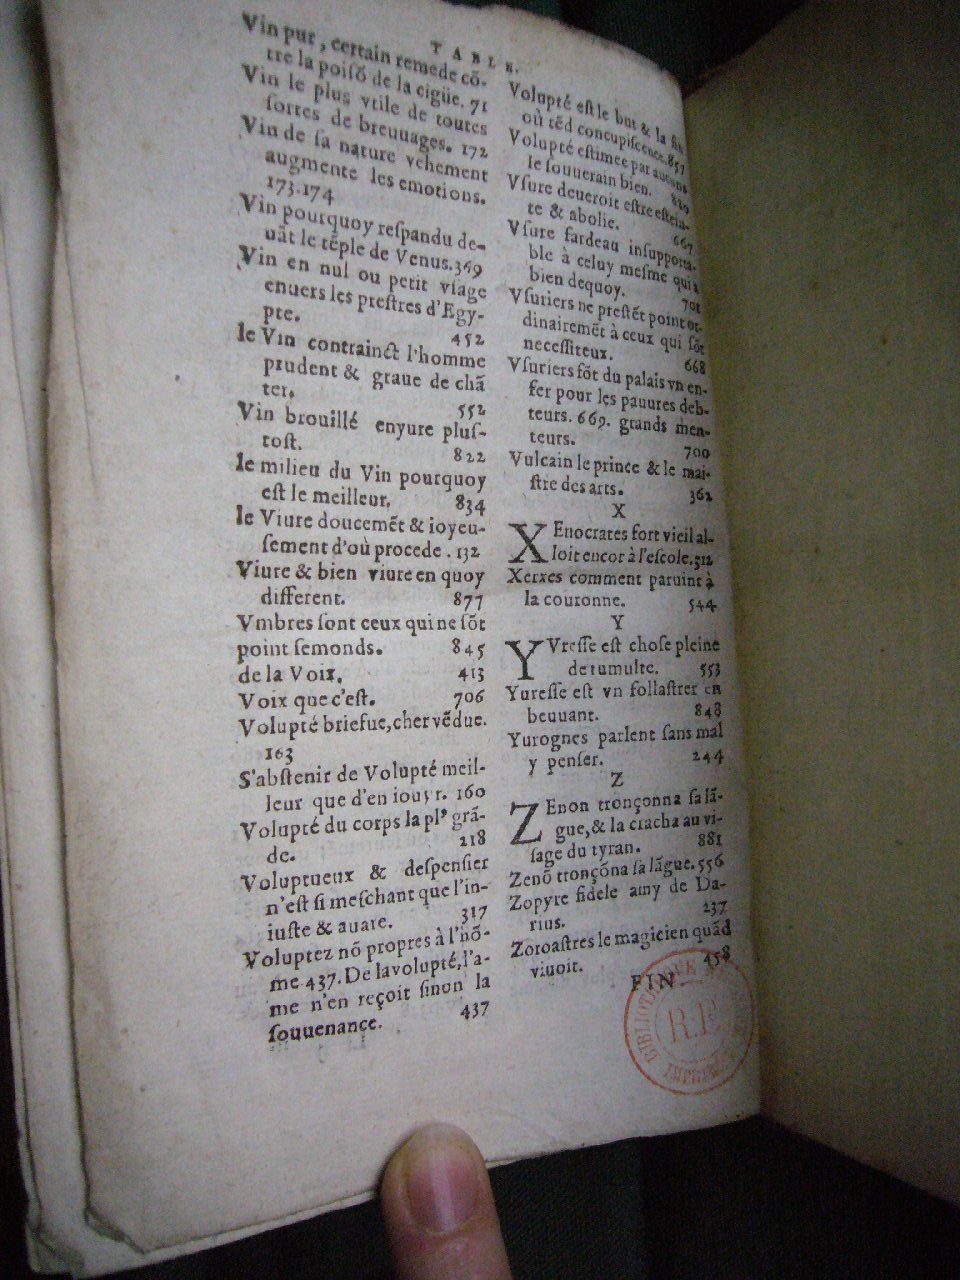 TABLE.
Vin pur, certain remede cõ-
tre la poisõ de la cigüe. 71
Vin le plus vtile de toutes
sortes de breuuages. 172
Vin de sa nature vehement
augmente les emotions.
173.174
Vin pourquoy respandu de-
uãt le tẽple de Venus. 369
Vin en nul ou petit vsage
enuers les prestres d'Egy-
pte. 452
le Vin contrainct l'homme
prudent & graue de chã
ter. 552
Vin brouillé enyure plus-
tost. 822
le milieu du Vin pourquoy
est le meilleur. 834
le Viure doucemẽt & ioyeu-
sement d'où procede. 132
Viure & bien viure en quoy
different. 877
Vmbres sont ceux qui ne sõt
point semonds. 845
de la Voix. 413
Voix que c'est. 706
Volupté briefue, cher vẽdue.
163
S'abstenir de Volupté meil-
leur que d'en iouyr. 160
Volupté du corps la pl' grã-
de. 218
Voluptueux & despensier
n'est si meschant que l'in-
iuste & auare. 317
Voluptez nõ propres à l'hõ-
me 437. De la volupté, l'a-
me n'en reçoit sinon la
souuenance. 437
Volupté est le but & la fin
où tẽd concupiscence. 857
Volupté estimee par aucuns
le souuerain bien.
Vsure deueroit estre estein-
te & abolie. 667
Vsure fardeau insupporta-
ble à celuy mesme qui a
bien dequoy. 701
Vsuriers ne prestẽt point or-
dinairemẽt à ceux qui sõt
necessiteux. 668
Vsuriers sõt du palais vn en-
fer pour les pauures deb-
teurs. 669. grands men-
teurs. 700
Vulcain le prince & le mai-
stre des arts. 362
X
XEnocrates fort vieil al-
loit encor à l'escole. 512
Xerxes comment paruint à
la couronne. 544
Y
YVresse est chose pleine
de tumulte. 553
Yuresse est vn follastrer en
beuuant. 848
Yurognes parlent sans mal
y penser. 244
Z
ZEnon tronçonna sa lã-
gue, & la cracha au vi-
sage du tyran. 881
Zenõ tronçõna sa lãgue. 556
Zopyre fidele amy de Da-
rius. 237
Zoroastres le magicien quãd
viuoit. 458
FIN
BIBLIOTHEQUE
R.F.